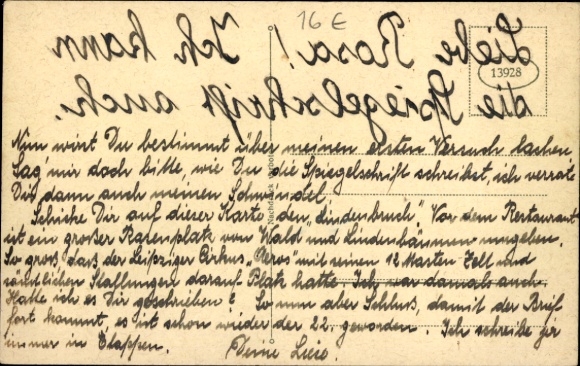 16 E
Liebe Rosa! Ich kann
die Spiegelschrift auch.
13928
Nun wirst Du bestimmt über meinen ersten Versuch lachen.
Sag' mir doch bitte, wie Du die Spiegelschrift schreibst, ich verrate
Dir dann auch meinen Schwindel.
Schicke Dir auf dieser Karte den „Lindenbruch". Vor dem Restaurant
ist ein großer Rasenplatz von Wald und Lindenbäumen umgeben.
So gross daß der Leipziger Cirkus mit seinen 12 Masten-Zelt und
sämtlichen Stallungen darauf Platz hatte. Ich war damals auch.
Hatte ich es Dir geschrieben? So nun aber Schluss, damit der Brief
fort kommt, es ist schon wieder der 22. geworden. Ich schreibe ja
immer in Etappen. Deine Liese.